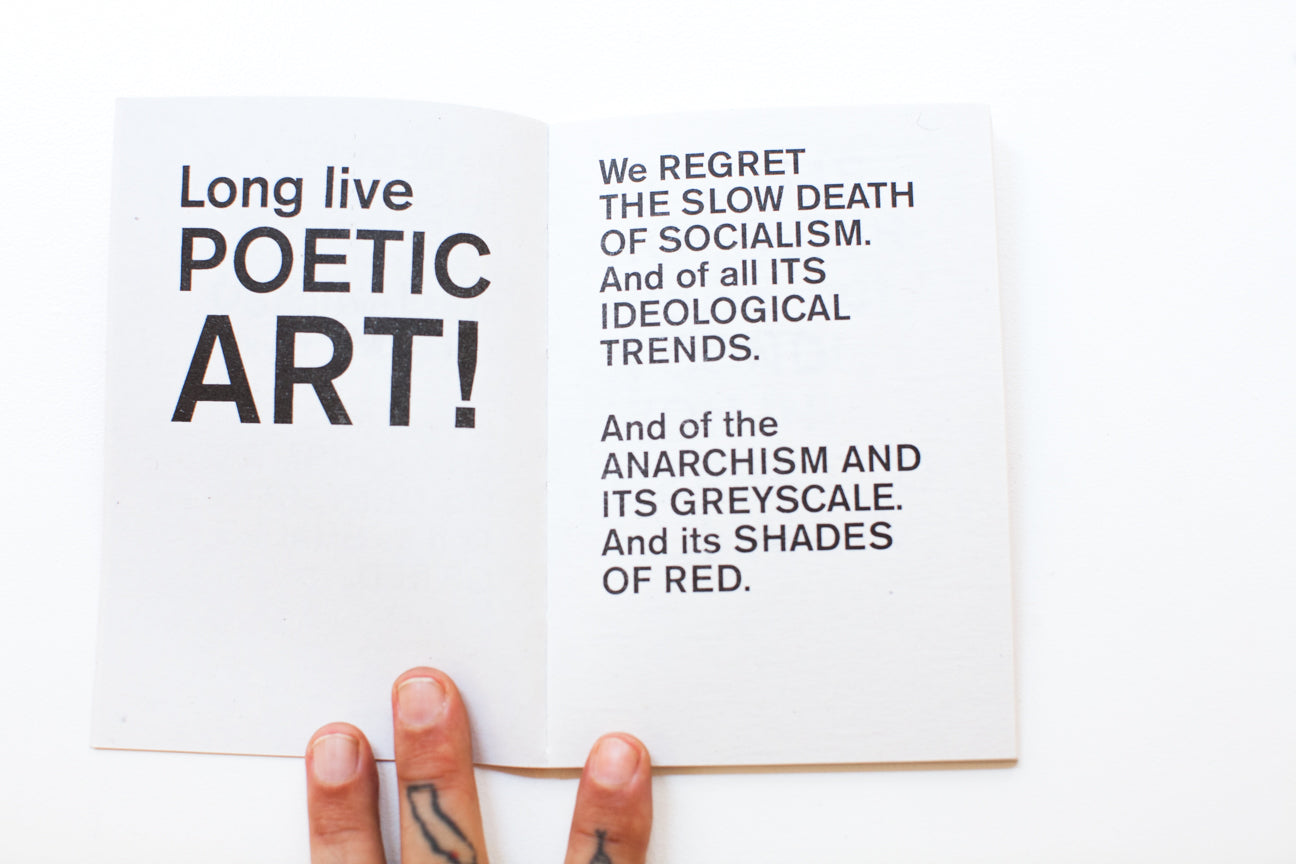 Long live
POETIC
ART!
We REGRET
THE SLOW DEATH
OF SOCIALISM.
And of all ITS
IDEOLOGICAL
TRENDS.
And of the
ANARCHISM AND
ITS GREYSCALE.
And its SHADES
OF RED.